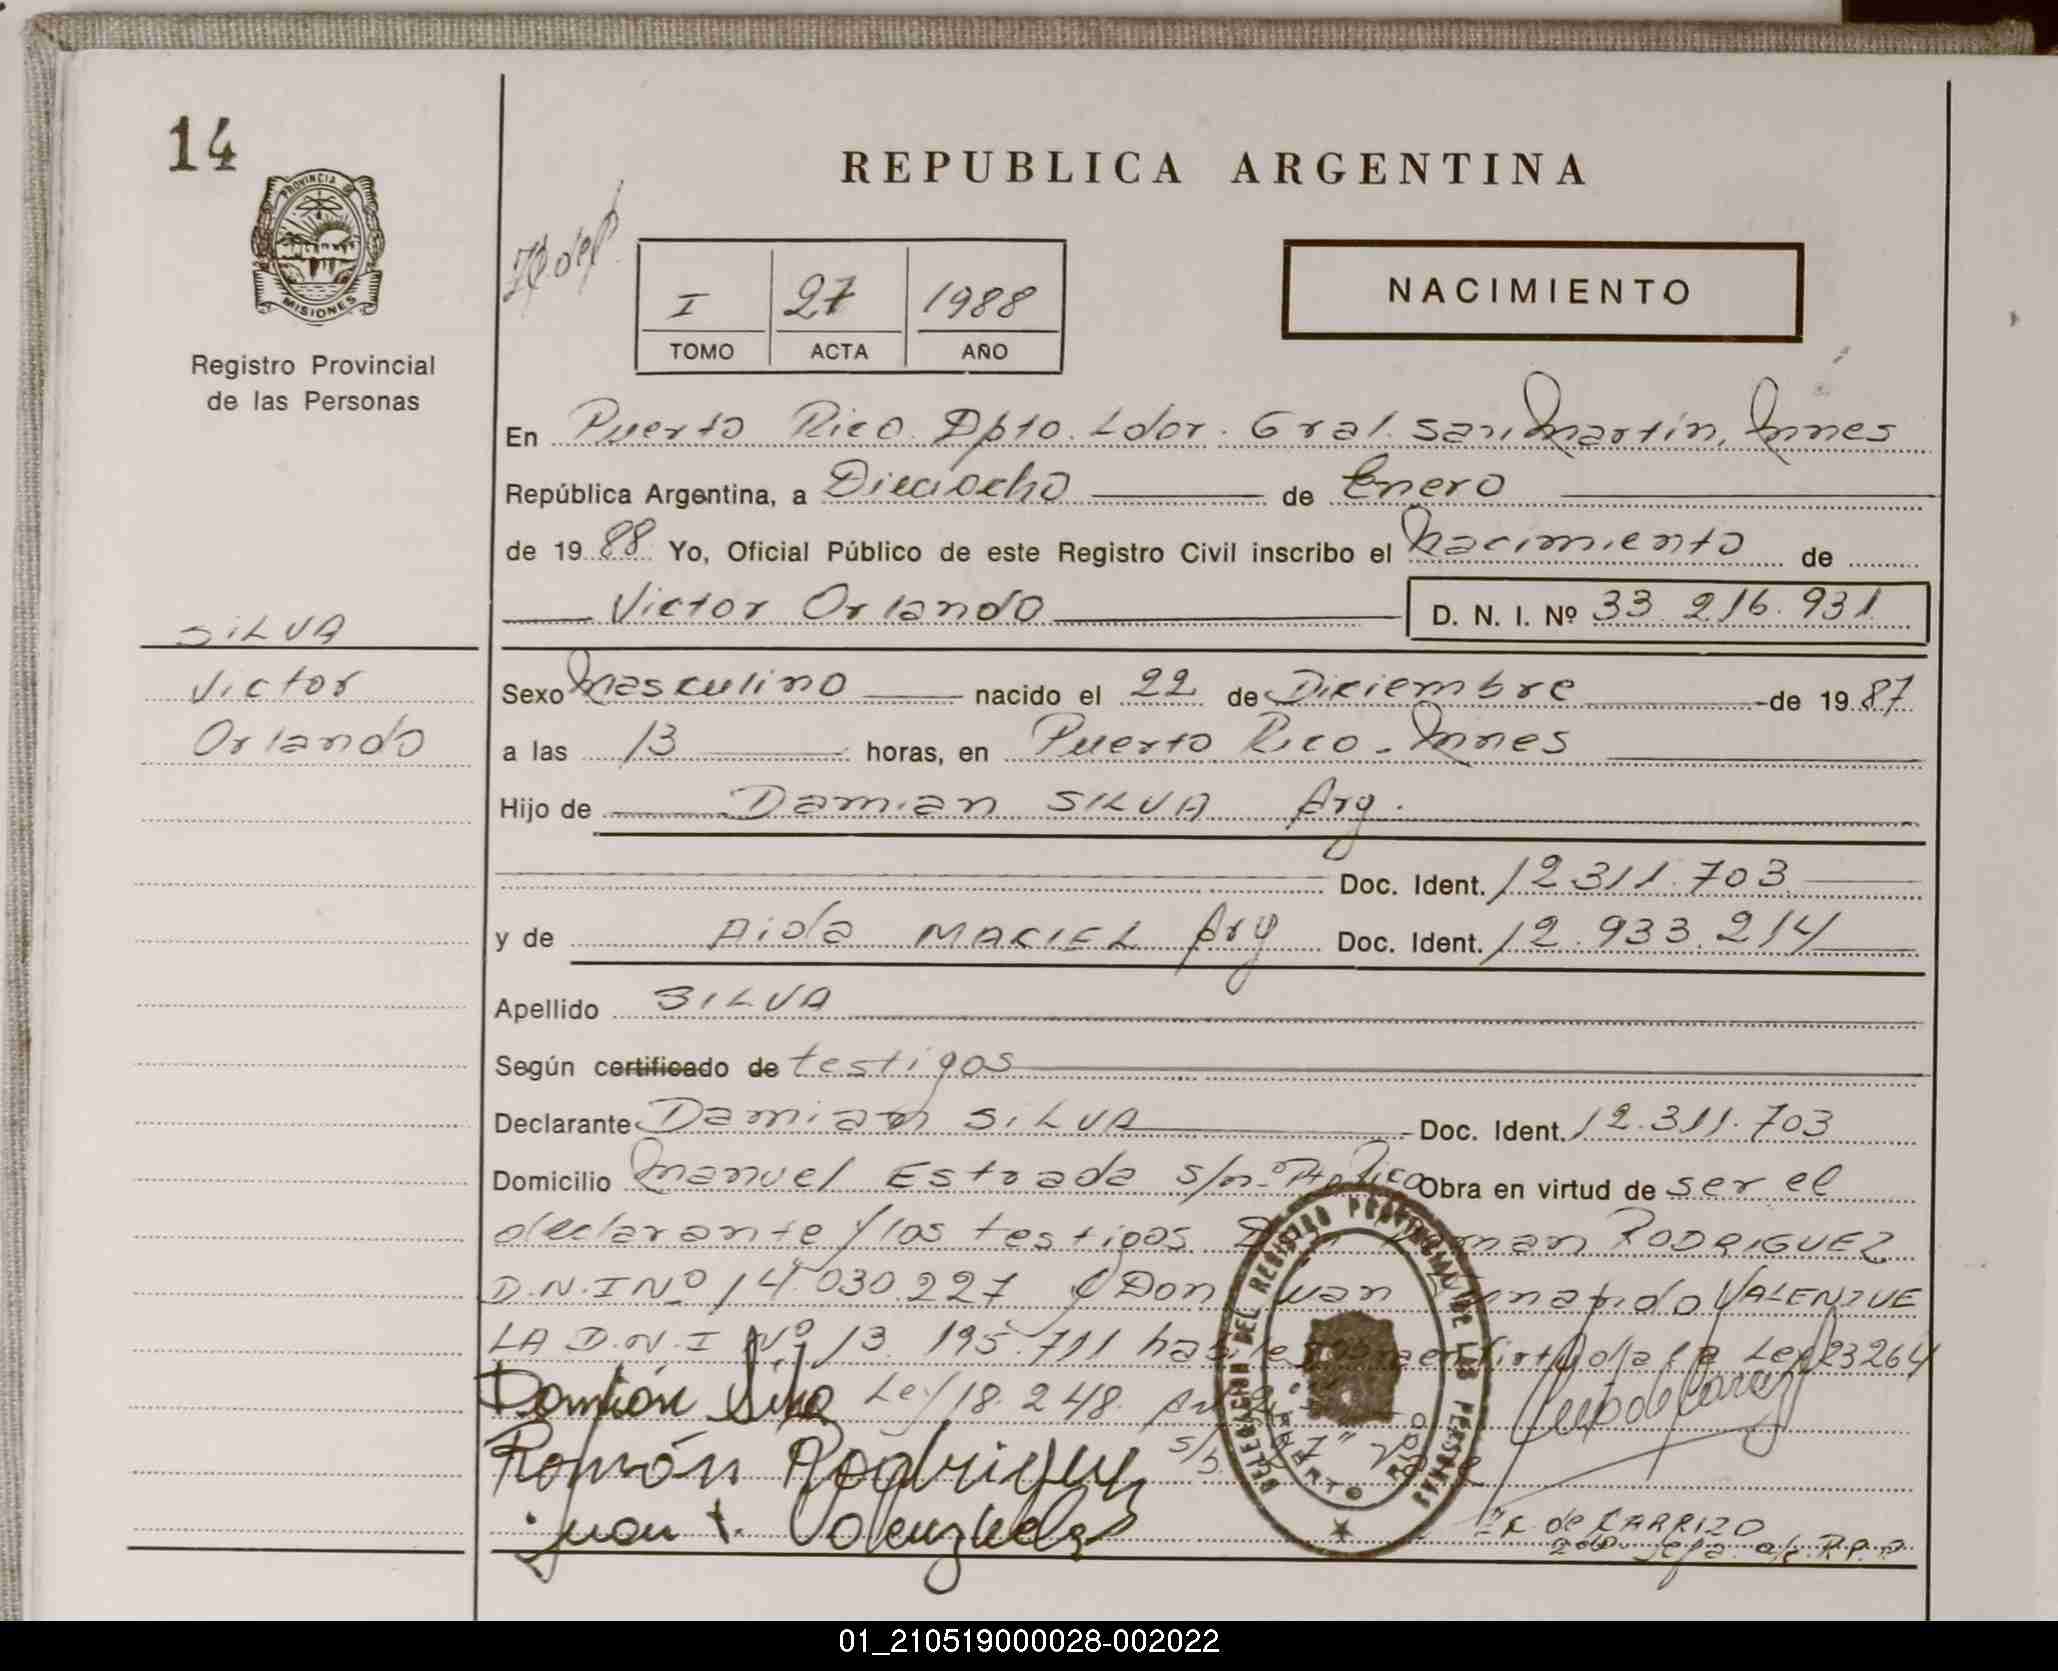 14
PROVINCIA DE
MISIONES
Registro Provincial
de las Personas
REPUBLICA ARGENTINA
I 27 1988
TOMO ACTA AÑO
NACIMIENTO
En Puerto Rico Dpto. Ldor. Gral. San Martín, Mnes
República Argentina, a Dieciocho de Enero
de 1988 Yo, Oficial Público de este Registro Civil inscribo el Nacimiento de
Victor Orlando D. N. I. Nº 33.216.931
SILVA
Victor
Orlando
Sexo Masculino nacido el 22 de Diciembre de 1987
a las 13 horas, en Puerto Rico - Mnes
Hijo de Damian SILVA Arg.
Doc. Ident. 12311.703
y de Aida MACIEL Arg Doc. Ident. 12.933.214
Apellido SILVA
Según certificado de testigos
Declarante Damian SILVA Doc. Ident. 12.311.703
Domicilio Manuel Estrada s/nº Pto Rico Obra en virtud de ser el
declarante y los testigos RODRIGUEZ
D.N.I Nº 14.030.227 y Don VALENZUE
LA D.N.I Nº 13.195.711 Ley 23264
Damián Silva Ley 18.248.
Román Rodriguez
Juan F. Valenzuela
DELEGACION DEL REGISTRO PROVINCIAL DE LAS PERSONAS
PUERTO RICO
de CARRIZO
R.P.P
01_210519000028-002022